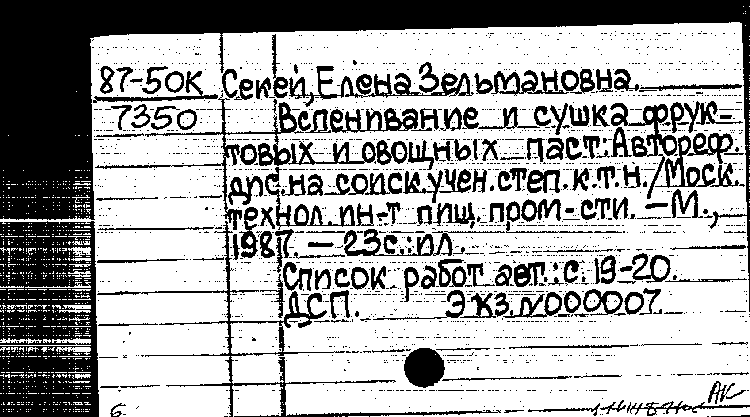 87-50К Секей, Елена Зельмановна.
7350 Вспенивание и сушка фрук-
товых и овощных паст: Автореф.
дис. на соиск. учен. степ. к.т.н. / Моск.
технол. ин-т пищ. пром-сти. — М.,
1987. — 23с.: ил.
Список работ авт.: с. 19-20.
ДСП. Экз. N000007.
АК
б